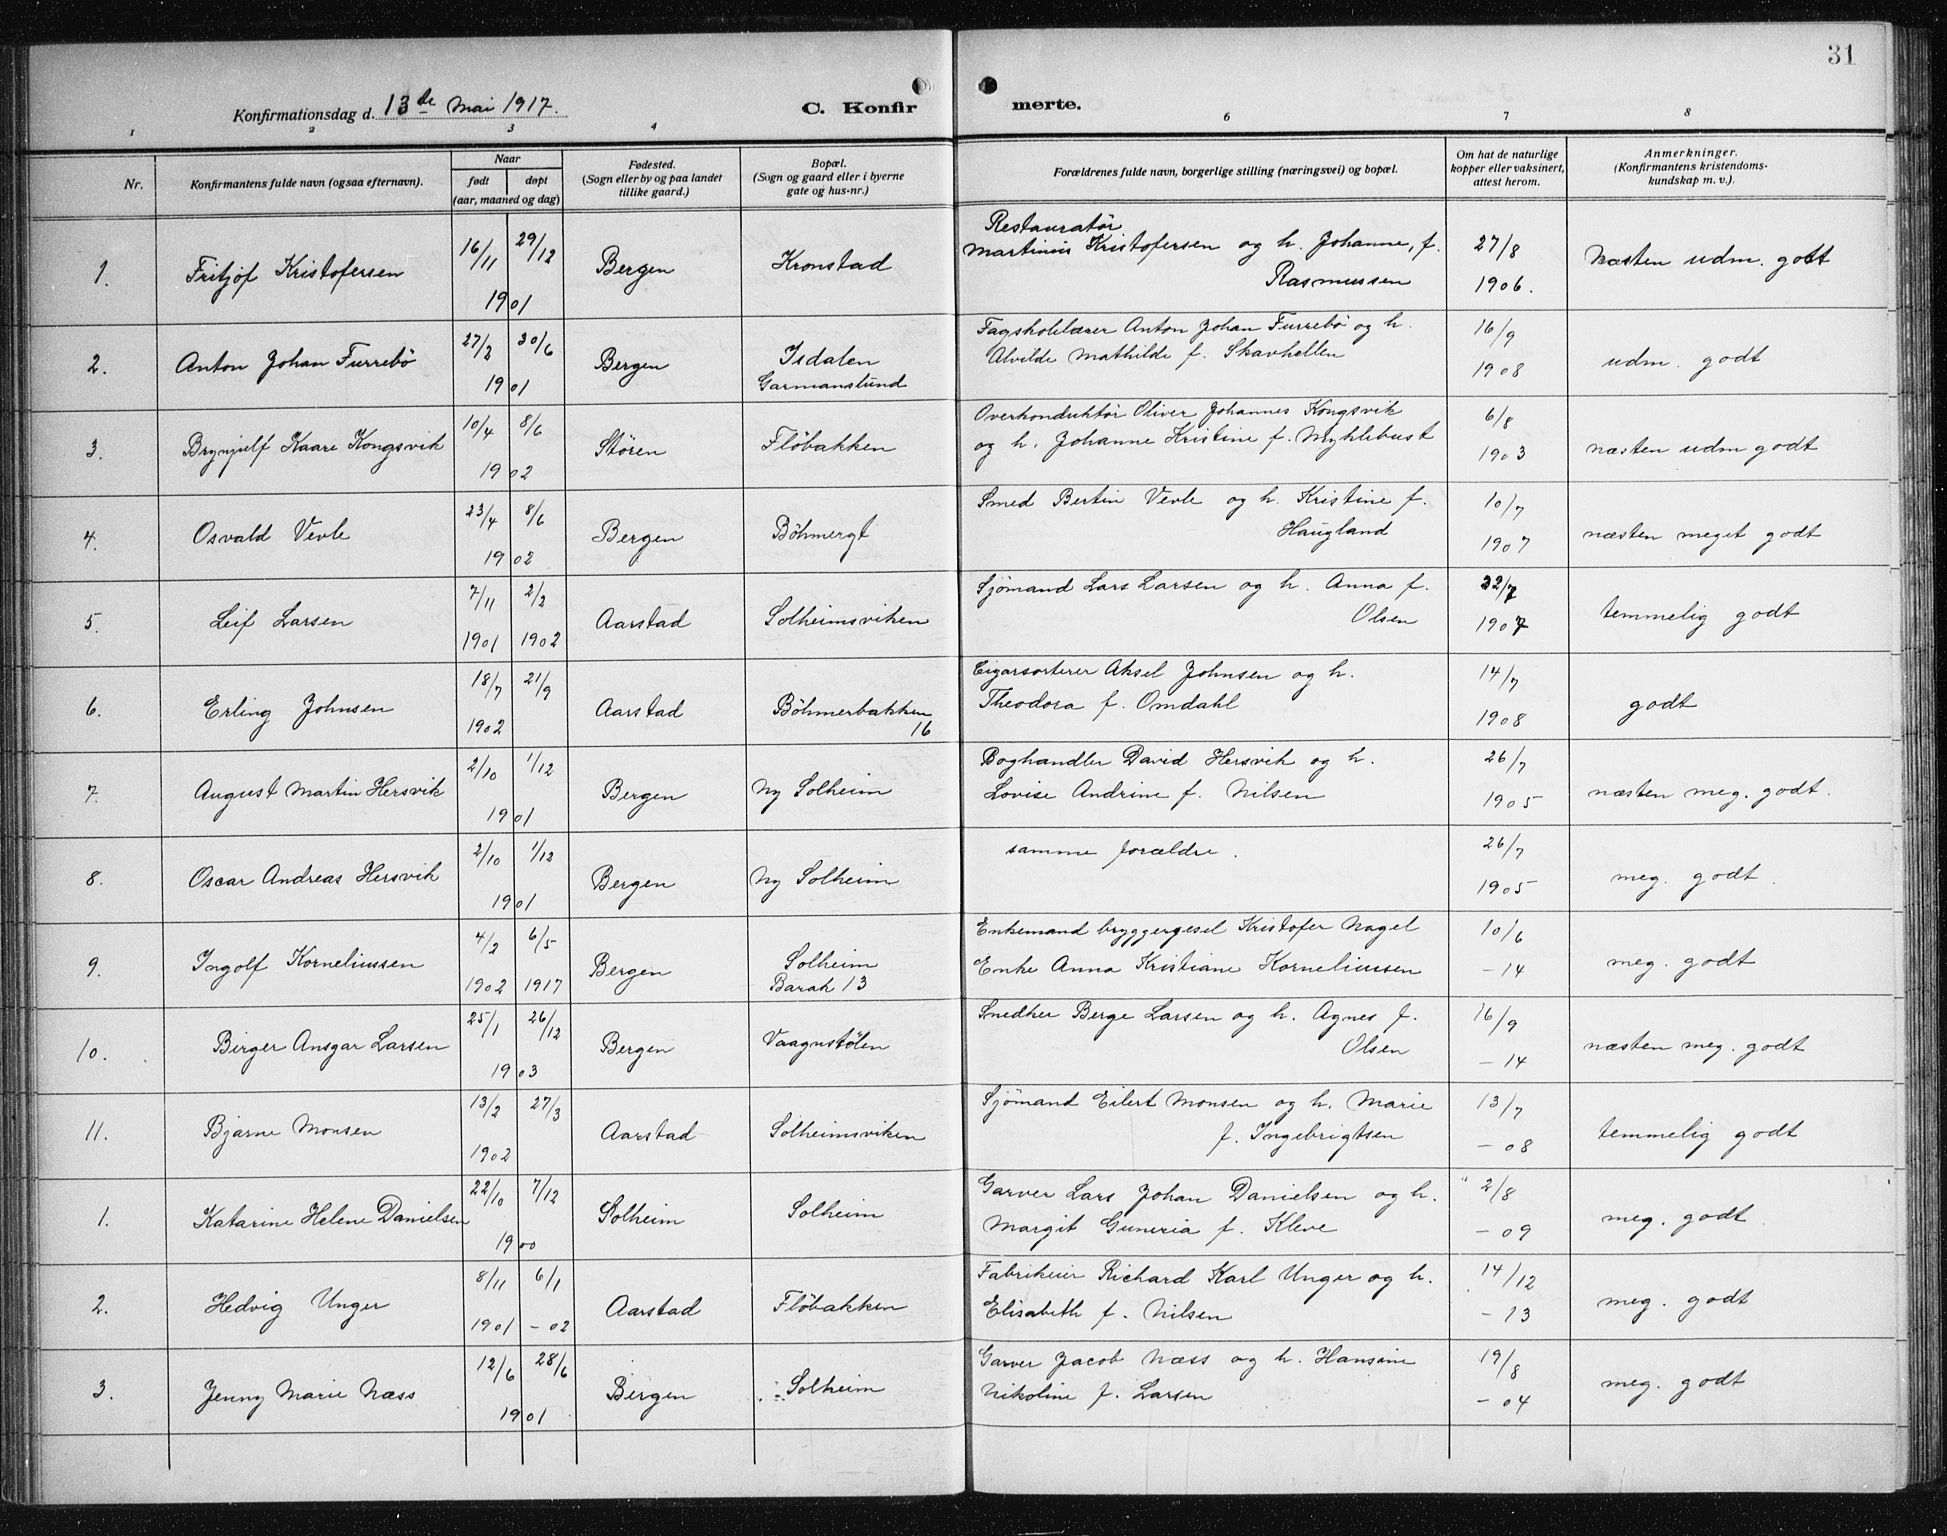 31
Konfirmationsdag d. 13de Mai 1917. C. Konfir merte.
1 2 3 4 6 7 8
Nr.
Konfirmantens fulde navn (ogsaa efternavn).
Naar
født døpt
(aar, maaned og dag)
Fødested.
(Sogn eller by og paa landet
tillike gaard.)
Bopæl.
(Sogn og gaard eller i byerne
gate og hus-nr.)
Forældrenes fulde navn, borgerlige stilling (næringsvei) og bopæl.
Om hat de naturlige
kopper eller vaksinert,
attest herom.
Anmerkninger.
(Konfirmantens kristendoms-
kundskap m. v.).
Restauratør
1. Fritjof Kristofersen 16/11 29/12 Bergen Kronstad Martinius Kristofersen og h. Johanne, f. 27/8 Næsten udm. godt
1901 Rasmussen 1906.
2. Anton Johan Furrebø 27/2 30/6 Bergen Isdalen Fagskolelærer Anton Johan Furrebø og h. 16/9 udm. godt
1901 Garmanslund Alvilde Mathilde f. Skavhellen 1908
3. Brynjulf Kaare Kongsvik 10/4 8/6 Støren Fløbakken Overkonduktør Oliver Johannes Kongsvik 6/8 næsten udm godt
1902 og h. Johanne Kristine f. Myklebust 1903
4. Osvald Vevle 23/4 8/6 Bergen Böhmergt Smed Bertin Vevle og h. Kristine f. 10/7 næsten meget godt
1902 Haugland 1907
5. Leif Larsen 7/11 2/2 Aarstad Solheimsviken Sjømand Lars Larsen og h. Anna f. 22/7 temmelig godt
1901 1902 Olsen 1907
6. Erling Johnsen 18/7 21/9 Aarstad Böhmerbakken Cigarsorterer Aksel Johnsen og h. 14/7 godt
1902 16 Theodora f. Omdahl 1908
7. August Martin Hersvik 2/10 1/12 Bergen Ny Solheim Boghandler David Hersvik og h. 26/7 næsten meg. godt.
1901 Lovise Andrine f. Nilsen 1905
8. Oscar Andreas Hersvik 2/10 1/12 Bergen Ny Solheim samme forældre. 26/7 meg. godt.
1901 1905
9. Ingolf Korneliussen 4/2 6/5 Bergen Solheim Enkemand bryggergesel Kristofer Nagel 10/6 meg. godt
1902 1917 Barak 13 Enke Anna Kristiane Korneliussen - 14
10. Birger Ansgar Larsen 25/1 26/12 Bergen Vaagustølen Snedker Berge Larsen og h. Agnes f. 16/9 næsten meg. godt
1903 Olsen - 14
11. Bjarne Monsen 13/2 27/3 Aarstad Solheimsviken Sjømand Eilert Monsen og h. Marie 13/7 temmelig godt
1902 f. Ingebrigtsen - 08
1. Katarine Helene Danielsen 22/10 7/12 Solheim Solheim Garver Lars Johan Danielsen og h. 2/8 meg. godt
1900 Margit Guneria f. Kleve - 09
2. Hedvig Unger 8/11 6/1 Aarstad Fløbakken Fabrikeier Richard Karl Unger og h. 14/12 meg. godt
1901 - 02 Elisabeth f. Nilsen - 13
3. Jenny Marie Næss 12/6 28/6 Bergen Solheim Garver Jacob Næss og h. Hansine 19/8 meg. godt
1901 Nikoline f. Larsen - 04